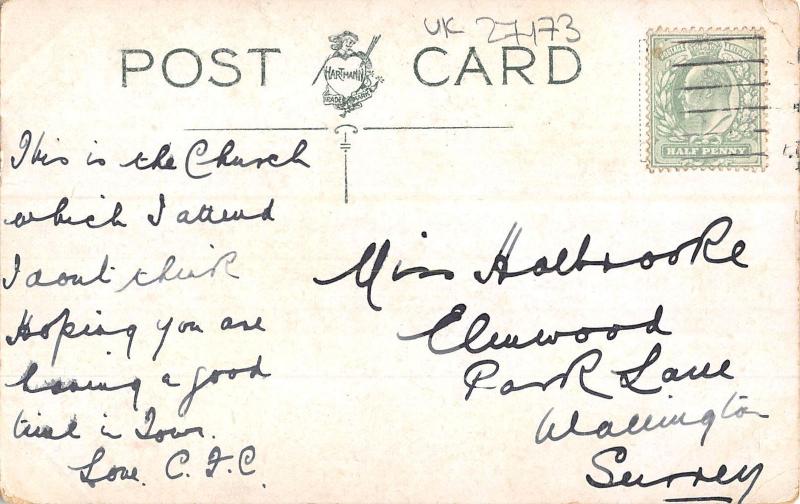 UK 27473
POST CARD
HARTMANN
TRADE MARK
HALF PENNY
This is the Church
which I attend
I dont think
Hoping you are
having a good
time in Town.
Love. C. F. C.
Miss Holbrooke
Elmwood
Park Lane
Wallington
Surrey